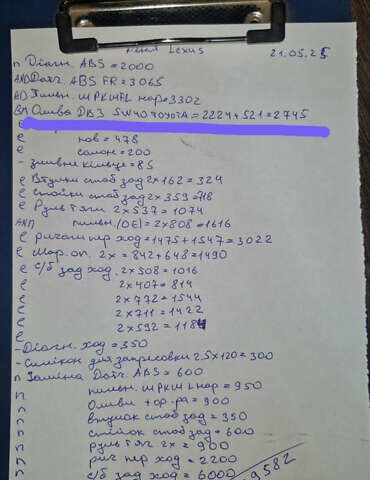 Lexus 21.05.25
П Діагн. ABS = 2000
Датч. ABS FR = 3065
Зальн. ШРКШFL нар = 3302
ВМ Олива ДВЗ 5W40 TOYOTA = 2224 + 521 = 2745
Є
Є нов = 478
Є салон = 200
- зливне кільце = 85
Є Втулки стаб зад 2x162 = 324
Є Стойки стаб зад 2x359 = 718
Є Рульт яги 2x537 = 1074
пильн. (OE) = 2x808 = 1616
Є Ричаги пер ход = 1475 + 1547 = 3022
Є Шар. оп. 2x = 842 + 648 = 1490
Є С/б зад ход. 2x508 = 1016
Є 2x407 = 814
Є 2x772 = 1544
Є 2x711 = 1422
Є 2x592 = 1184
- Діагн. ход = 350
- Силікон для запресовки 2,5x120 = 300
П Заміна Датч. ABS = 600
П пильн. ШРКШL нар = 950
П Оливи + ор-ра = 900
П втулок стаб зад = 350
П стійок стаб зад = 600
П руль тяг 2x = 900
П рич пер ход = 2200
П с/б зад ход = 6000
9582